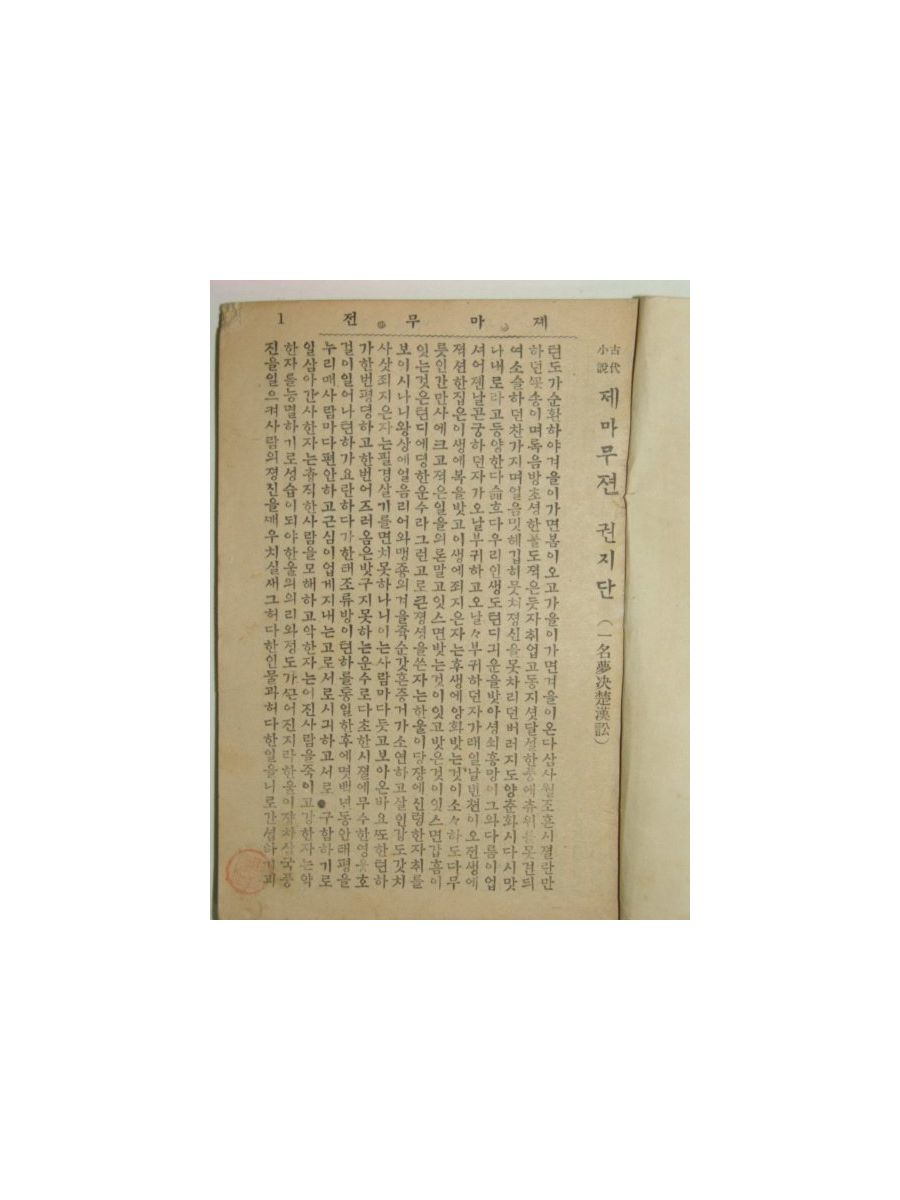 제마무전 1
古代小說 제마무젼 권지단 (一名夢决楚漢訟)
텬도가순화하야겨울이가면봄이오고가을이가면겨울이온다삼사월조흔시졀란만
하던꼿송이며록음방초셩한풀도젹은듯자취업고동지셧달셜한풍에츄위를못견듸
여소슬하던찬가지며얼음밋헤깁히뭇쳐졍신을못차리던버러지도양춘화시다시맛
나내로라고등양한다슯흐다우리인생도텬디긔운을밧아셩쇠흥망이그와다름이업
셔어졔날곤궁하던자가오날부귀하고오날々부귀하던자가래일날빈쳔이오젼생에
젹션한집은이생에복을밧고이생에죄지은자는후생에앙화밧는것이소々하도다무
릇인간만사에크고젹은일을의론말고잇스면밧는것이잇고밧은것이잇스면감흠이
잇는것은텬디에뎡한운수라그런고로큰졍셩을쓴자는한울이당쟝에신령한자취를
보이시나니왕상에얼음리어와맹죵의겨울쥭순갓흔증거가소연하고살인강도갓치
사삿죄지은자는필경살기를면치못하나니이는사람마다듯고보아온바요또한텬하
가한번평명하고한번어즈러옴은밧구지못하는운수로다초한시졀에무수한영웅호
걸이일어나텬하가요란하다가한태조류방이텬하를통일한후에몃백년동안태평을
누리매사람마다편안하고근심이업게지내는고로서로시긔하고서로●구함하기로
일삼아간사한자는츙직한사람을모해하고악한자는어진사람을죽이고강한자는약
한자를능멸하기로셩습이되야한울의의리와졍도가
진을일으켜사람의졍신을깨우치실새그허다한인물과허다한일을